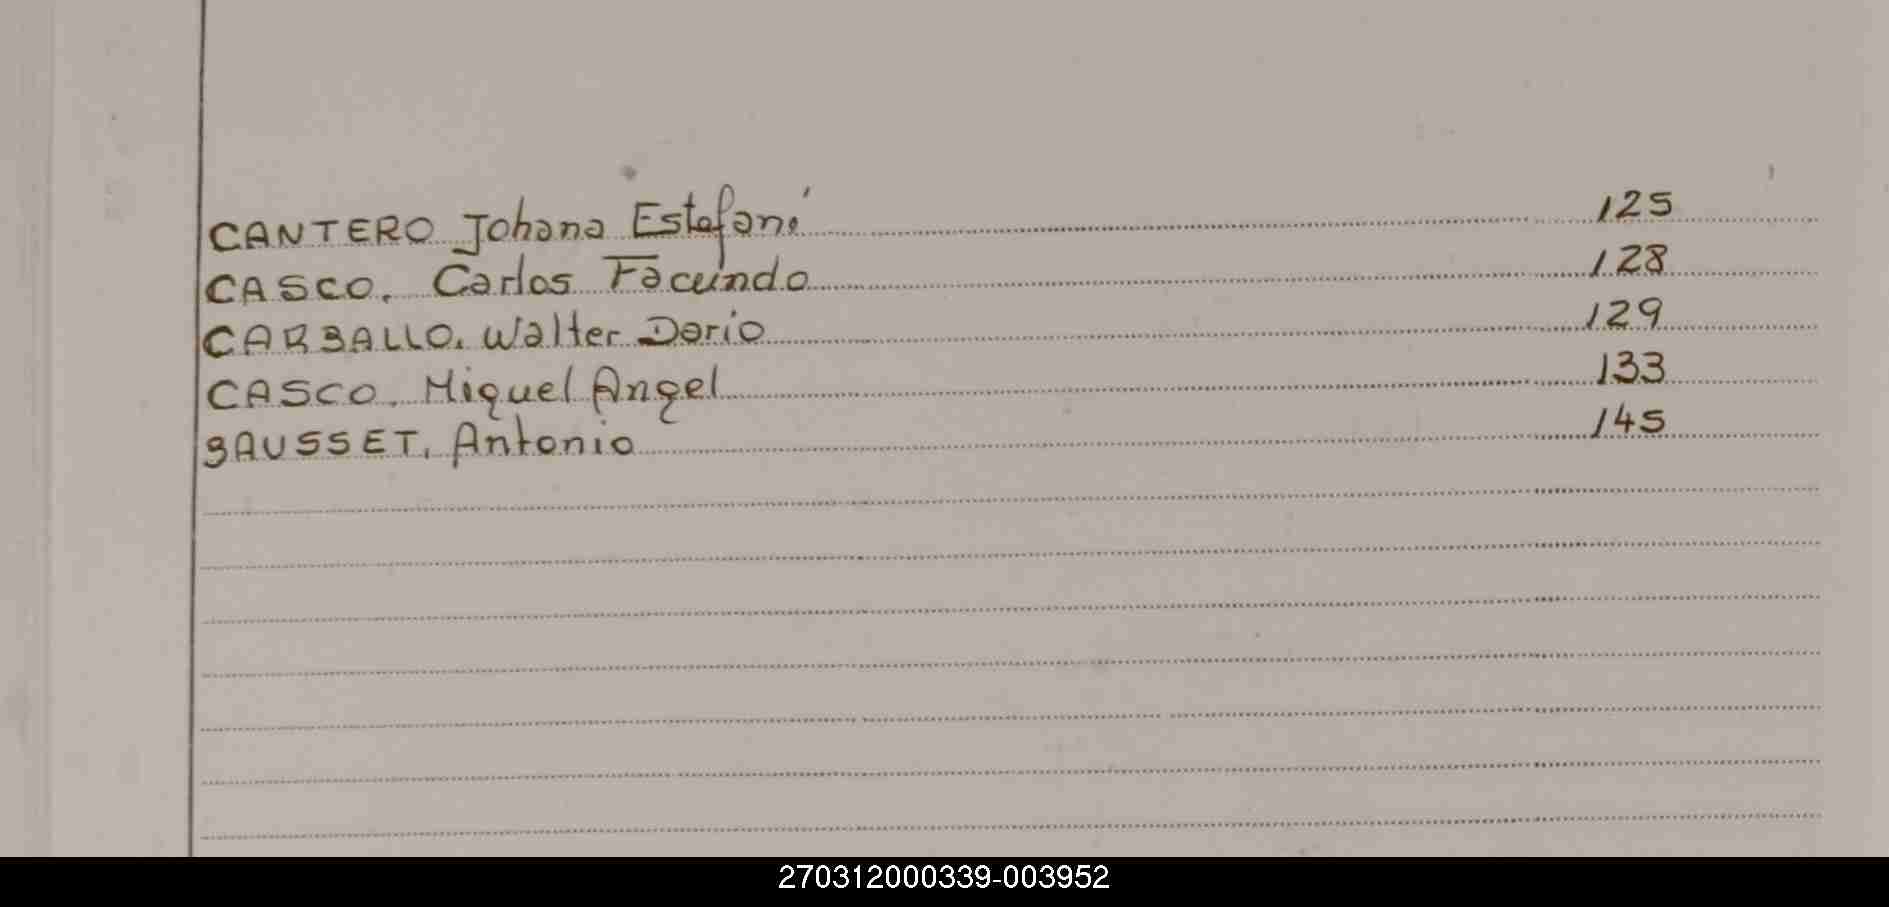 CANTERO Johana Estefaní 125
CASCO, Carlos Facundo 128
CARBALLO, Walter Dario 129
CASCO, Miguel Angel 133
BAUSSET, Antonio 145
270312000339-003952